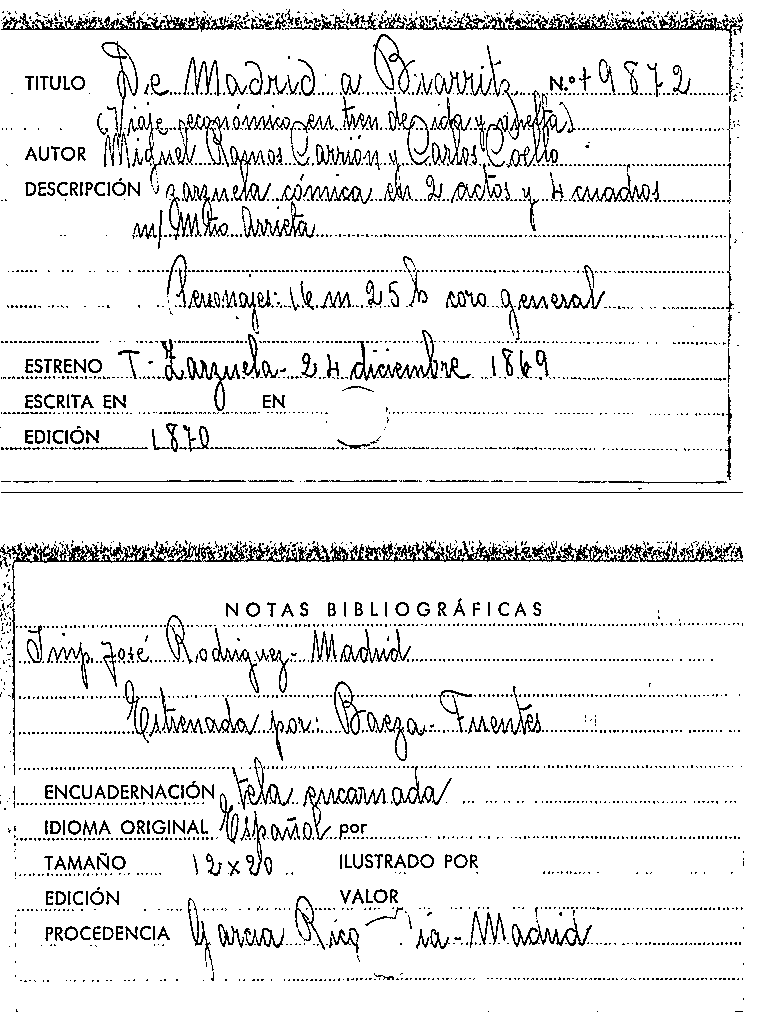 TITULO De Madrid a Biarritz N.º 79872
(Viaje económico en tren de ida y vuelta)
AUTOR Miguel Ramos Carrión y Carlos Coello
DESCRIPCIÓN zarzuela cómica en 2 actos y 4 cuadros
m/ Mtro Arrieta
Personajes: 16 m 25 h coro general
ESTRENO T. Zarzuela - 24 diciembre 1869
ESCRITA EN EN
EDICIÓN 1870
NOTAS BIBLIOGRÁFICAS
Imp. José Rodriguez - Madrid
Estrenada por: Baeza - Fuentes
ENCUADERNACIÓN tela encarnada
IDIOMA ORIGINAL Español por
TAMAÑO 12 x 20 ILUSTRADO POR
EDICIÓN VALOR
PROCEDENCIA Garcia Rico - Madrid